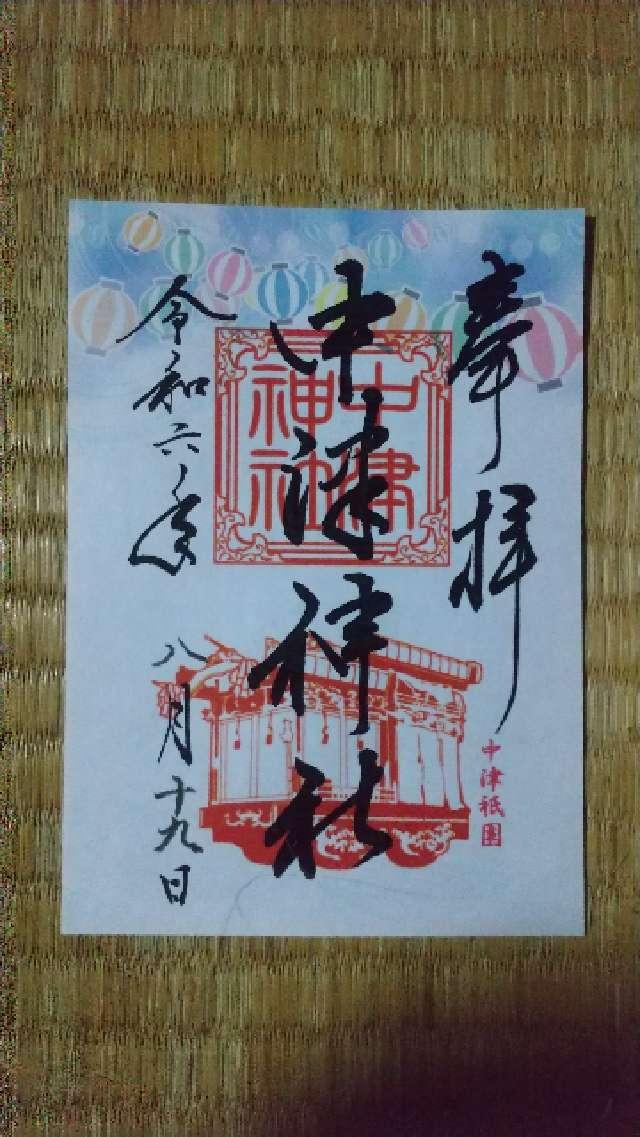 奉拝
中津神社
中津神社
中津祇園
令和六年
八月十九日